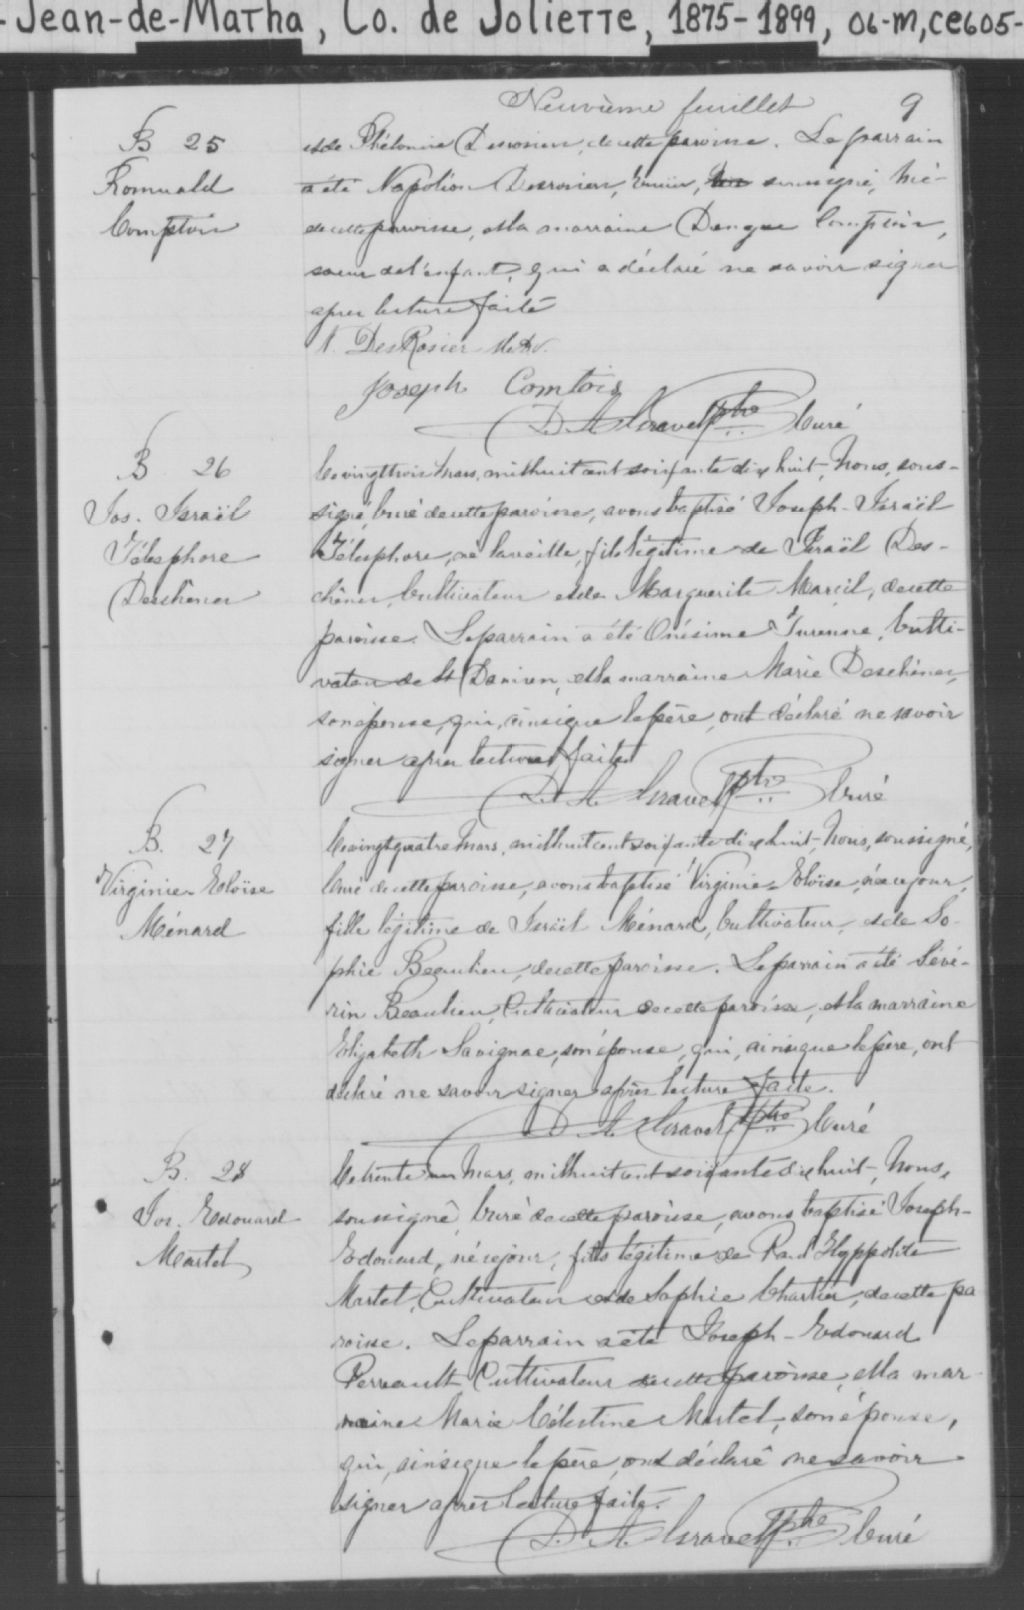 -Jean-de-Matha, Co. de Joliette, 1875-1899, 06-M, CE605-
Neuvième feuillet 9
B 25
Romuald
Comptois
et de Philomène Desrosiers, de cette paroisse. Le parrain
a été Napoléon Desrosiers, soussigné, Mé-
de cette paroisse, et la marraine Comptois,
soeur de l'enfant, qui a déclaré ne savoir signer
après lecture faite
N. DesRosier M.D.
Joseph Comtois
D. A. Gravel Ptre Curé
B 26
Jos. Israël
Télesphore
Deschênes
Le vingt trois Mars, mil huit cent soixante dix huit, Nous, sous-
signé, Curé de cette paroisse, avons baptisé Joseph-Israël
Télesphore, né la veille, fils légitime de Israël Des-
chênes, Cultivateur et de Marguerite Marcil, de cette
paroisse. Le parrain a été Onésime Turenne, Culti-
vateur de St Damien, et la marraine Marie Deschênes,
son épouse, qui, ainsi que le père, ont déclaré ne savoir
signer après lecture faite.
D. A. Gravel Ptre Curé
B. 27
Virginie-Eloïse
Ménard
Le vingt quatre Mars, mil huit cent soixante dix huit, Nous, soussigné,
Curé de cette paroisse, avons baptisé Virginie-Eloïse, née ce jour,
fille légitime de Israël Ménard, Cultivateur, et de So-
phie Beaulieu, de cette paroisse. Le parrain a été Sévé-
rin Beaulieu, Cultivateur de cette paroisse, et la marraine
Elizabeth Savignac, son épouse, qui, ainsi que le père, ont
déclaré ne savoir signer après lecture faite.
D. A. Gravel Ptre Curé
B. 28
Jos. Edouard
Martel
Le trente un Mars, mil huit cent soixante dix huit, Nous,
soussigné Curé de cette paroisse, avons baptisé Joseph-
Edouard, né ce jour, fils légitime de Paul Hyppolite
Martel, Cultivateur et de Sophie Chartier, de cette pa
roisse. Le parrain a été Joseph-Edouard
Perreault Cultivateur de cette paroisse, et la mar-
raine Marie Célestine Martel, son épouse,
qui, ainsi que le père, ont déclaré ne savoir
signer après lecture faite.
D. A. Gravel Ptre Curé